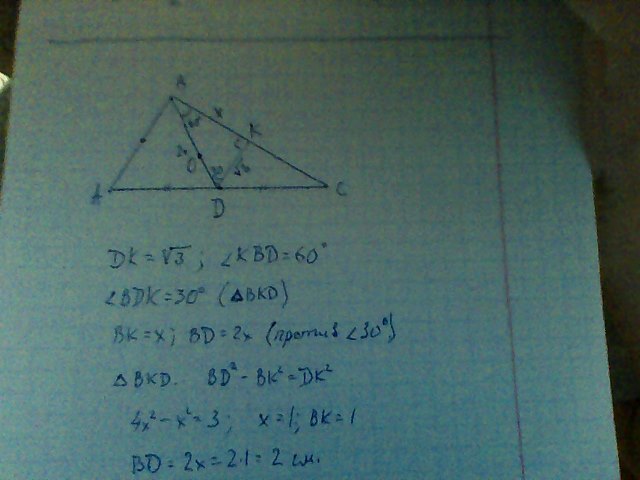 B
x
K
60°
2x
O
30°
√3
A
D
C
DK = √3 ; ∠KBD = 60°
∠BDK = 30° (△BKD)
BK = x ; BD = 2x (против ∠30°)
△BKD. BD² - BK² = DK²
4x² - x² = 3 ; x = 1 ; BK = 1
BD = 2x = 2·1 = 2 см.